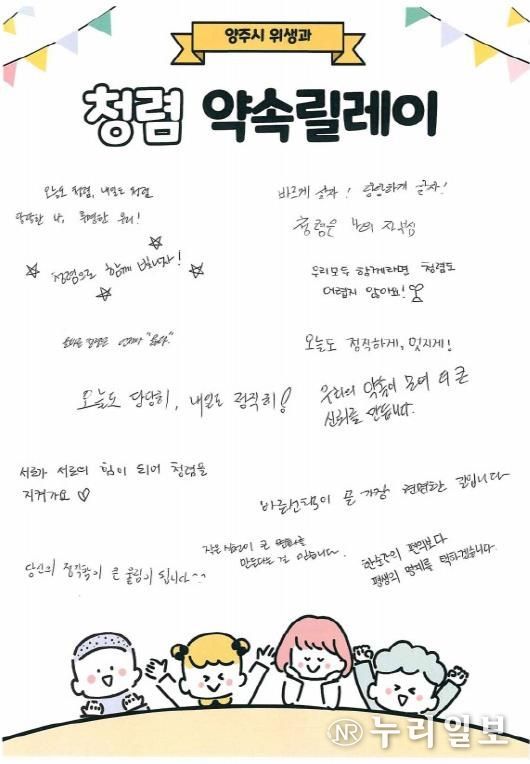 양주시 위생과
청렴 약속릴레이
오늘도 청렴, 내일도 청렴
당당한 나, 투명한 우리!
바르게 살자! 당당하게 살자!
청렴은 나의 자부심
청렴으로 함께 빛나자!
우리모두 함께라면 청렴도
어렵지 않아요!
오늘도 정직하게, 멋지게!
오늘도 당당히, 내일도 정직히!
우리의 약속이 모여 더 큰
신뢰를 만듭니다.
서로가 서로의 힘이 되어 청렴을
지켜가요
바른선택이 곧 가장 현명한 길입니다
작은 실천이 큰 변화를
만든다는 걸 믿습니다.
한순간의 편의보다
평생의 명예를 택하겠습니다.
당신의 정직함이 큰 울림이 됩니다^^
NR 누리일보